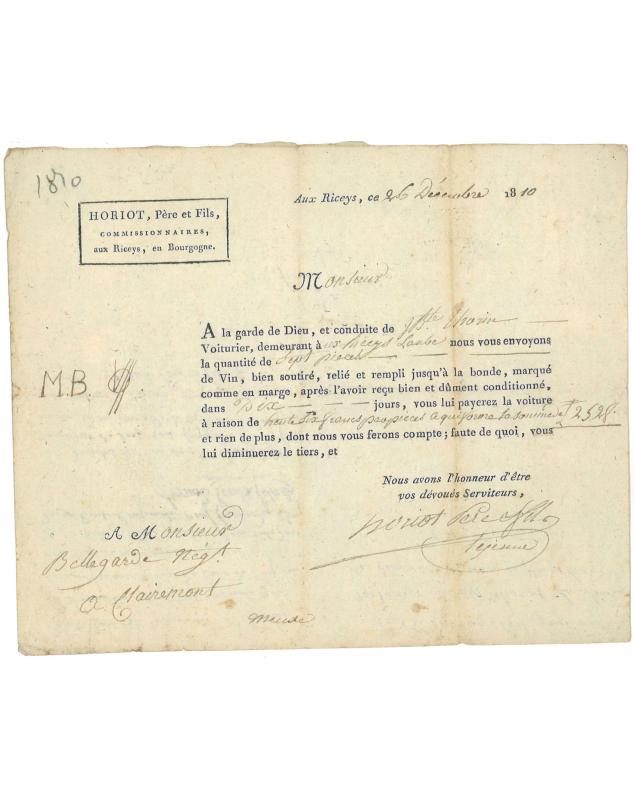 1810
Aux Riceys, ce 26 Décembre 1810
HORIOT, Père et Fils,
COMMISSIONNAIRES,
aux Riceys, en Bourgogne.
Monsieur
A la garde de Dieu, et conduite de
Voiturier, demeurant à ux Riceys Laube nous vous envoyons
la quantité de Sept pieces
de Vin, bien soutiré, relié et rempli jusqu'à la bonde, marqué
M.B.
comme en marge, après l'avoir reçu bien et dûment conditionné,
dans Dix jours, vous lui payerez la voiture
à raison de trente six francs par pieces la somme de 252
et rien de plus, dont nous vous ferons compte; faute de quoi, vous
lui diminuerez le tiers, et
Nous avons l'honneur d'être
vos dévoués Serviteurs,
horiot Pere & fils
Lejeune
A Monsieur
Bellegarde Négt.
a Clairemont
Meuse